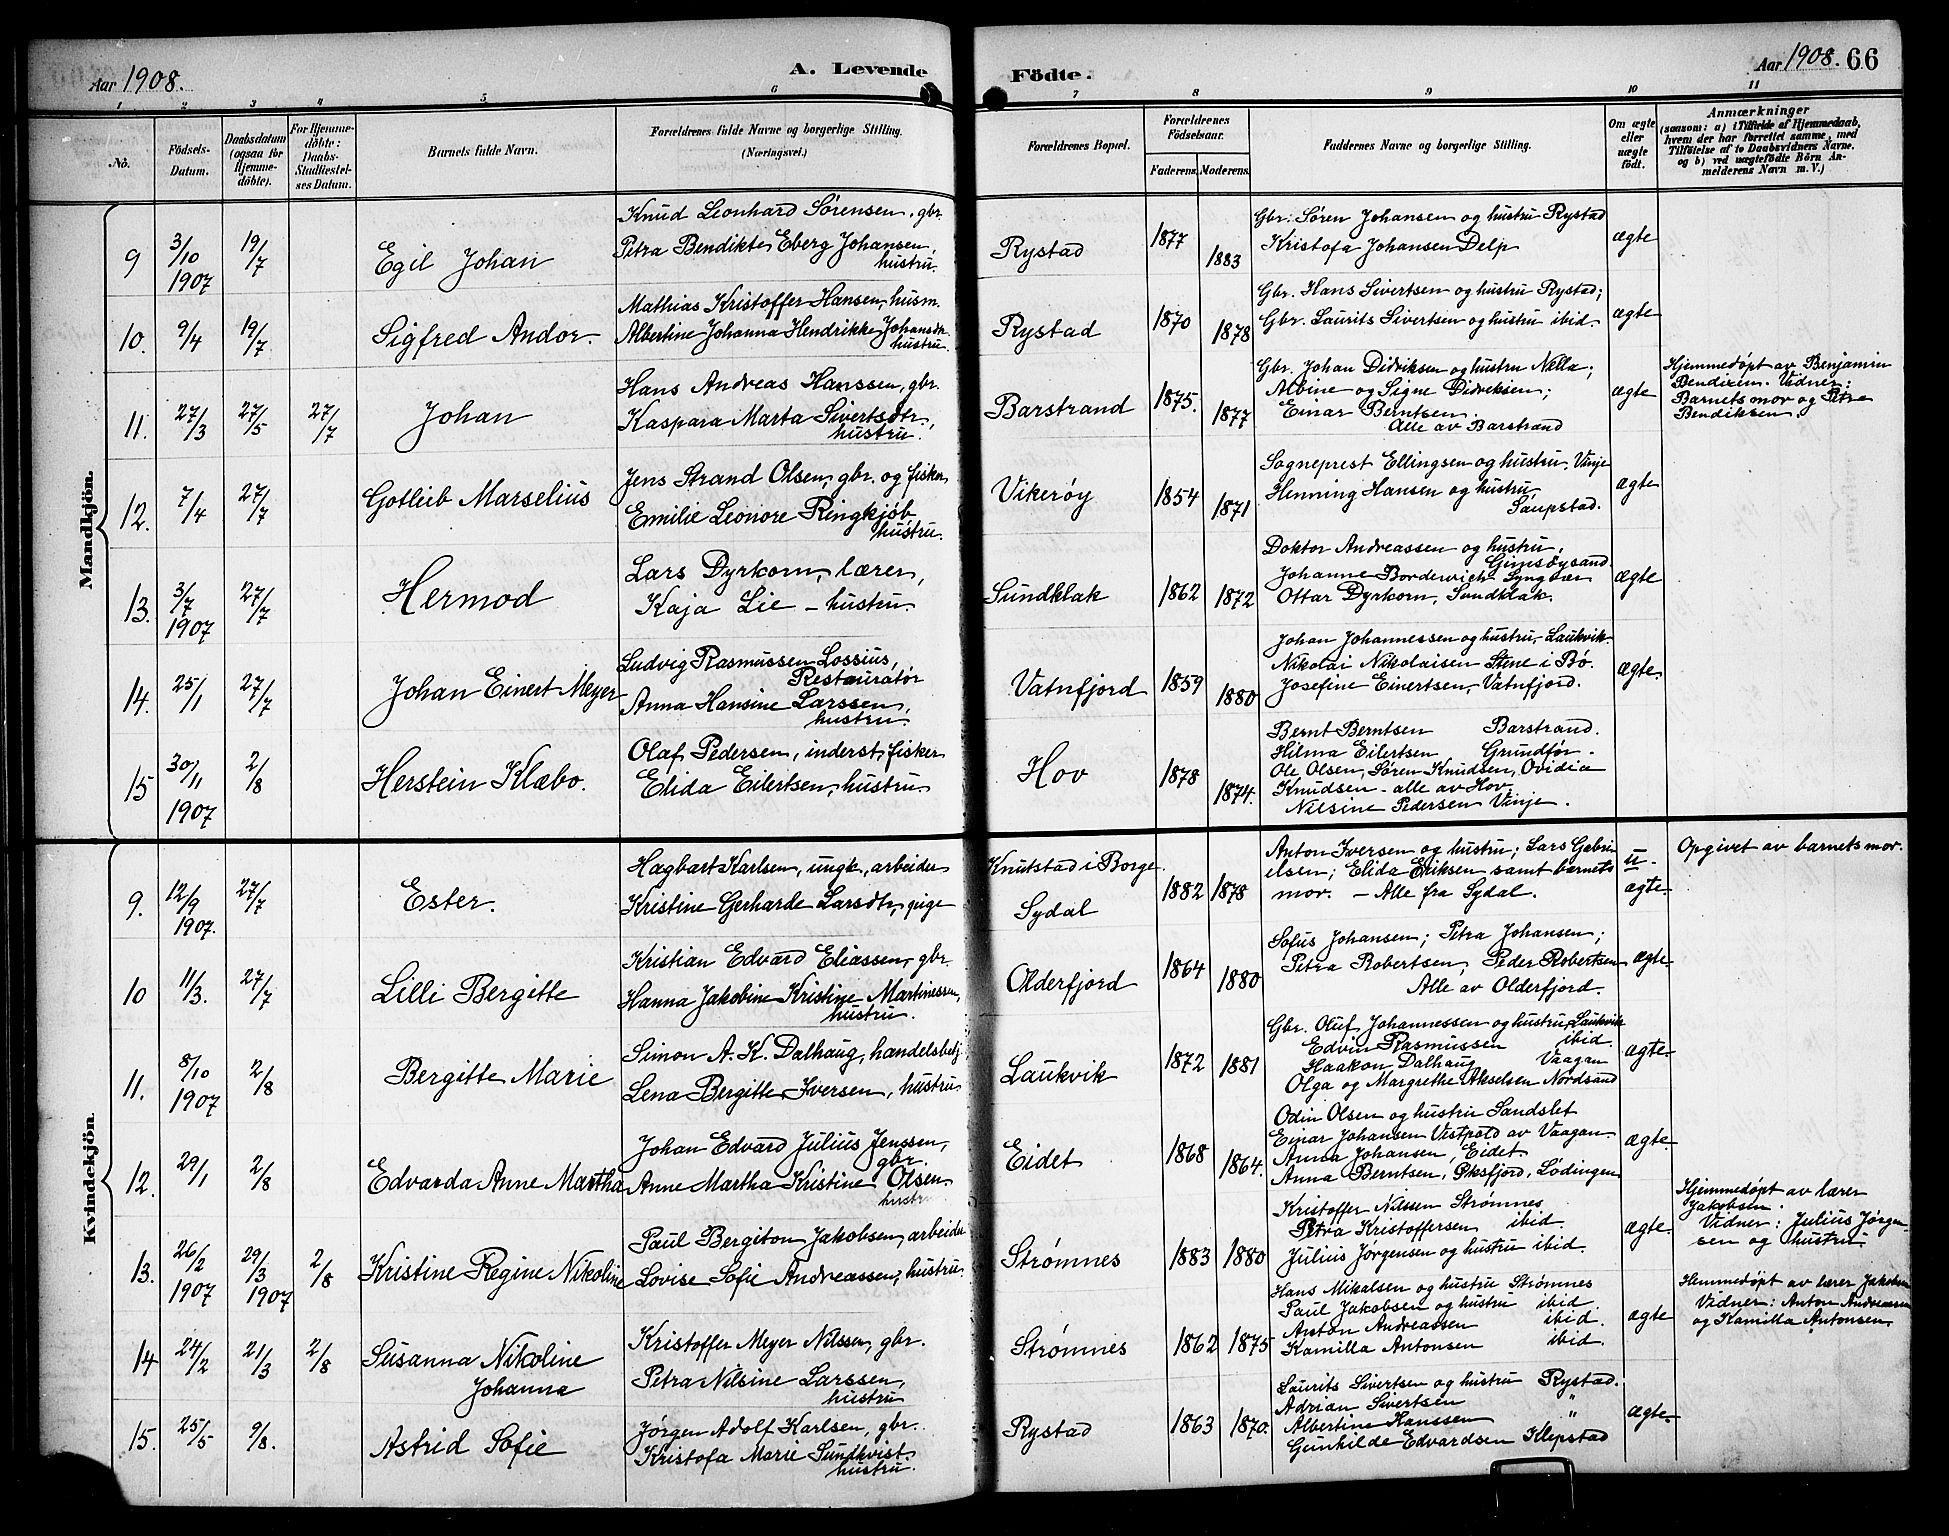 Aar 1908.
A. Levende
Födte.
Aar 1908. 66
1 2 3 4 5 6 7 8 9 10 11
No.
Födsels-Datum.
Daabsdatum (ogsaa for Hjemme-döbte).
For Hjemme-döbte: Daabs-Stadfæstel-ses Datum.
Barnets fulde Navn.
Forældrenes fulde Navne og borgerlige Stilling.
(Næringsvei.)
Forældrenes Bopæl.
Forældrenes Födselsaar.
Faderens. Moderens.
Faddernes Navne og borgerlige Stilling.
Om ægte eller uægte födt.
Anmærkninger
(saasom: a) i Tilfælde af Hjemmedaab,
hvem der har forrettet samme, med
Tilföielse af to Daabsvidners Navne,
og b) ved uægtefödte Börn An-
melderens Navn m. V.)
Mandkjön.
9
3/10 1907
19/7
Egil Johan
Knud Leonhard Sørensen, gbr.
Petra Bendikte Eberg Johansen,
hustru.
Rystad
1877
1883
Gbr. Søren Johansen og hustru Rystad
Kristofa Johansen Delp
ægte
10.
9/4
19/7
Sigfred Andor.
Mathias Kristoffer Hansen, husm.
Albertine Johanna Hendrikke Johansdtr.
hustru.
Rystad
1870
1878
Gbr. Hans Sivertsen og hustru Rystad;
Gbr. Laurits Sivertsen og hustru ibid.
ægte
11.
27/3
27/5
27/7
Johan
Hans Andreas Hanssen, gbr.
Kaspara Marta Sivertsdtr,
hustru.
Barstrand
1875.
1877
Gbr. Johan Didriksen og hustru Nella;
Albine og Signe Didriksen;
Einar Berntsen.
Alle av Barstrand
ægte
Hjemmedøpt av Benjamin
Bendixen. Vidner:
Barnets mor og Petra
Bendiksen.
12.
7/4
27/7
Gotlieb Marselius
Jens Strand Olsen, gbr. og fisker
Emilie Leonore Ringkjøb
hustru.
Vikerøy
1854
1871
Sogneprest Ellingsen og hustru, Vinje
Henning Hansen og hustru
Saupstad.
ægte
13.
3/7 1907
27/7
Hermod
Lars Dyrkorn, lærer,
Kaja Lie - hustru
Sundklak
1862
1872
Doktor Andreassen og hustru,
Gimsøysand
Johanne Borderwich Lyngvær
Ottar Dyrkorn, Sundklak.
ægte
14.
25/1
27/7
Johan Einert Meyer
Ludvig Rasmussen Lossius,
Restauratør
Anna Hansine Larssen,
hustru
Vatnfjord
1859
1880
Johan Johannessen og hustru, Laukvik
Nikolai Nikolaisen Stene i Bø.
Josefine Einertsen, Vatnfjord.
ægte.
15
30/11 1907
2/8
Herstein Klæbo.
Olaf Pedersen, inderst, fisker
Elida Eilertsen, hustru
Hov
1878
1874.
Bernt Berntsen Barstrand.
Hilma Eilertsen Grundfør.
Ole Olsen, Søren Knudsen, Ovidia
Knudsen - alle av Hov,
Nilsine Pedersen Vinje.
Kvindekjön.
9.
12/9 1907.
27/7
Ester.
Hagbart Karlsen, ungk., arbeider
Kristine Gerharde Larsdtr, pige
Knutstad i Borge
Sydal
1882
1878
Anton Iversen og hustru; Lars Gabri
elsen; Elida Eriksen samt barnets
mor. - Alle fra Sydal.
u-
ægte.
Opgivet av barnets mor.
10
11/3.
27/7
Lilli Bergitte
Kristian Edvard Eliassen, gbr.
Hanna Jakobine Kristine Martinessen,
hustru.
Olderfjord
1864
1880
Sofus Johansen; Petra Johansen;
Petra Robertsen, Peder Robertsen
Alle av Olderfjord.
ægte.
11.
8/10 1907
2/8
Bergitte Marie
Simon A. K. Dalhaug, handelsbetj.
Lena Bergitte Iversen, hustru
Laukvik
1872
1881
Gbr. Oluf Johannessen og hustru, Laukvik
Edvin Rasmussen ibid.
Haakon Dalhaug Vaagan
Olga og Margrethe Akselsen Nordsand
ægte
12.
29/1
2/8
Edvarda Anne Martha
Johan Edvard Julius Jenssen,
gbr.
Anne Martha Kristine Olsen
hustru
Eidet
1868
1864.
Odin Olsen og hustru Sandslet
Einar Johansen Vestpold av Vaagan
Anna Johansen, Eidet
Anna Berntsen, Øksfjord, Lødingen
ægte
13.
26/2 1907
29/3 1907
2/8
Kristine Regine Nikoline
Paul Bergiton Jakobsen, arbeider
Lovise Sofie Andreassen, hustru.
Strømnes
1883
1880
Kristoffer Nilssen Strømnes
Petra Kristoffersen ibid.
Julius Jørgensen og hustru ibid.
ægte.
Hjemmedøpt av lærer
Jakobsen.
Vidner: Julius Jørgen-
sen og hustru
14
24/2
21/3
2/8
Susanna Nikoline
Johanna
Kristoffer Meyer Nilssen, gbr.
Petra Nilsine Larssen,
hustru
Strømnes
1862
1875
Hans Mikalsen og hustru Strømnes
Paul Jakobsen og hustru ibid.
Anton Andreassen ibid.
Kamilla Antonsen ibid.
ægte
Hemmedøpt av lærer Jakobsen
Vidner: Anton Andreassen
og Kamilla Antonsen.
15.
25/5
9/8.
Astrid Sofie
Jørgen Adolf Karlsen, gbr.
Kristofa Marie Sundkvist.
hustru.
Rystad
1863
1870.
Laurits Sivertsen og hustru Rystad.
Adrian Sivertsen "
Albertine Hanssen "
Gunhilde Edvardsen Klepstad
ægte